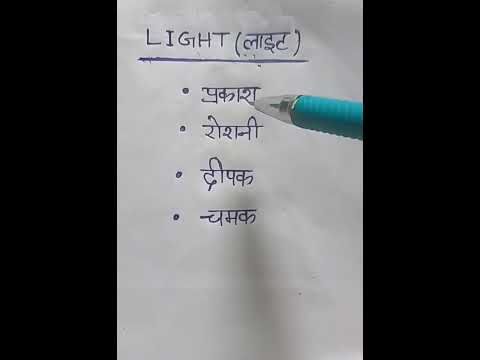 LIGHT (लाइट)
• प्रकाश
• रोशनी
• दीपक
• चमक